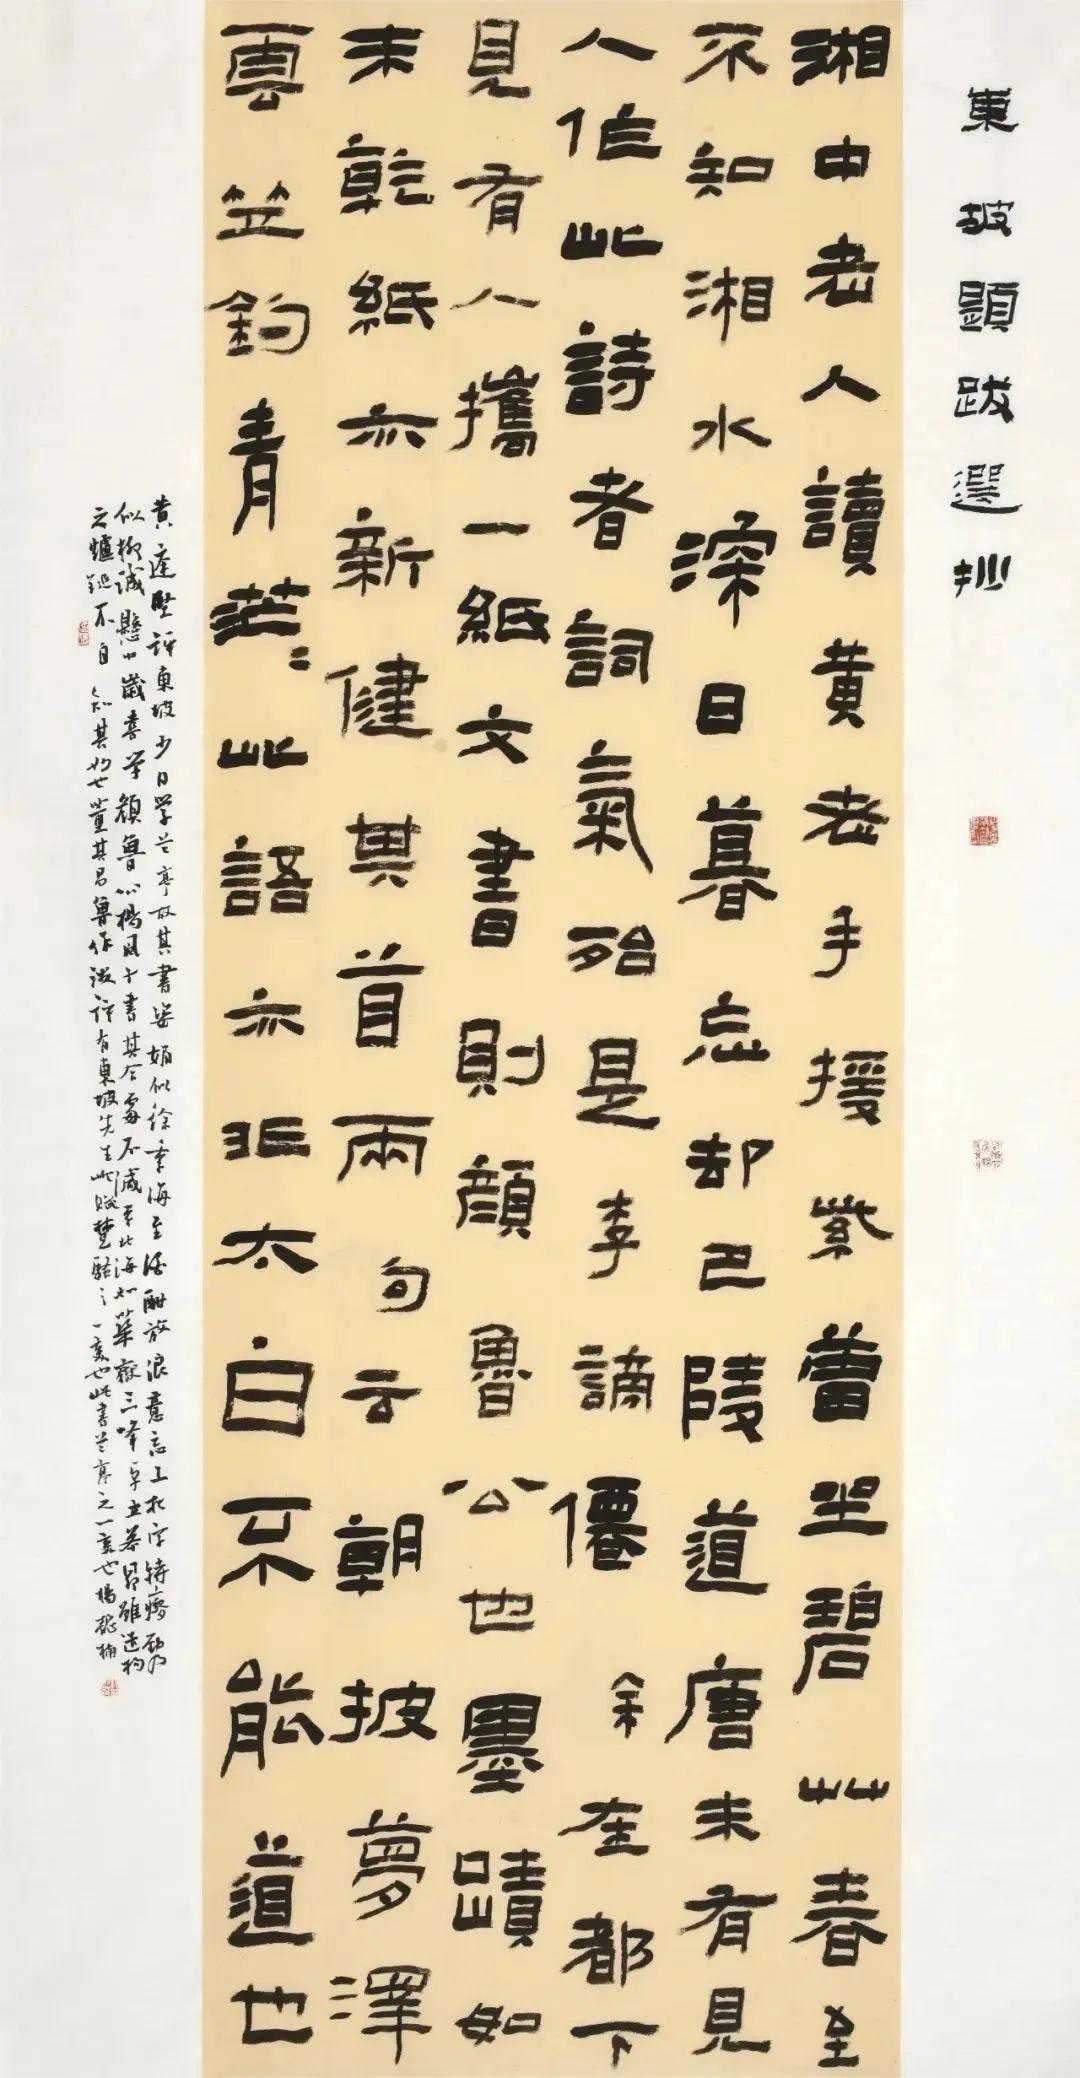 東坡題跋選抄
湘中老人讀黃老手援紫蕾坐碧艸春至
不知湘水深日暮忘却巴陵道唐末有見
人作此詩者詞氣殆是李謫僊余在都下
見有人攜一紙文書則顏魯公也墨蹟如
未乾紙亦新健其首兩句云朝披夢澤
雲笠釣青茫〻此語亦非太白不能道也
黄庭堅評東坡少日學兰亭故其書姿媚似徐季海至酒酣放浪意忘工拙字特瘦勁乃
似柳誠懸中歲喜学顏魯公楊風子書其合處不減李北海如華嶽三峰卓立
之爐錘不自知其妙也董其昌有東坡先生此賦楚騷之一变也此書兰亭之一变也